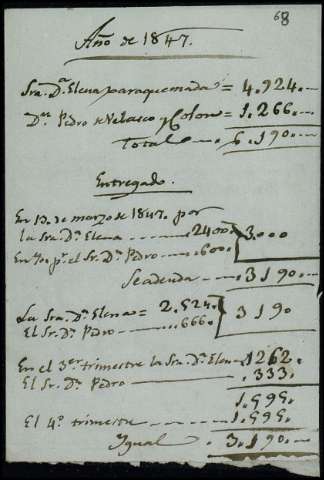 68
Año de 1847.
Sra. Dª. Elena paraquemada = 4.924..
Dn. Pedro de Velasco y Colon = 1.266..
Total 6.190..
Entregado.
En 13. de marzo de 1847. por
la Sra. Dª. Elena 2400 3.000
En yo. pr. el Sr. Dn. Pedro 600
Se adeuda 3190..
La Sra. Dª. Elena = 2.524. 3190
El Sr. Dn. Pedro 666
En el 3er. trimestre la Sra. Dª. Elena 1262.
El Sr. Dn. Pedro 333.
1.595.
El 4º. trimestre 1.595.
Igual 3.190..